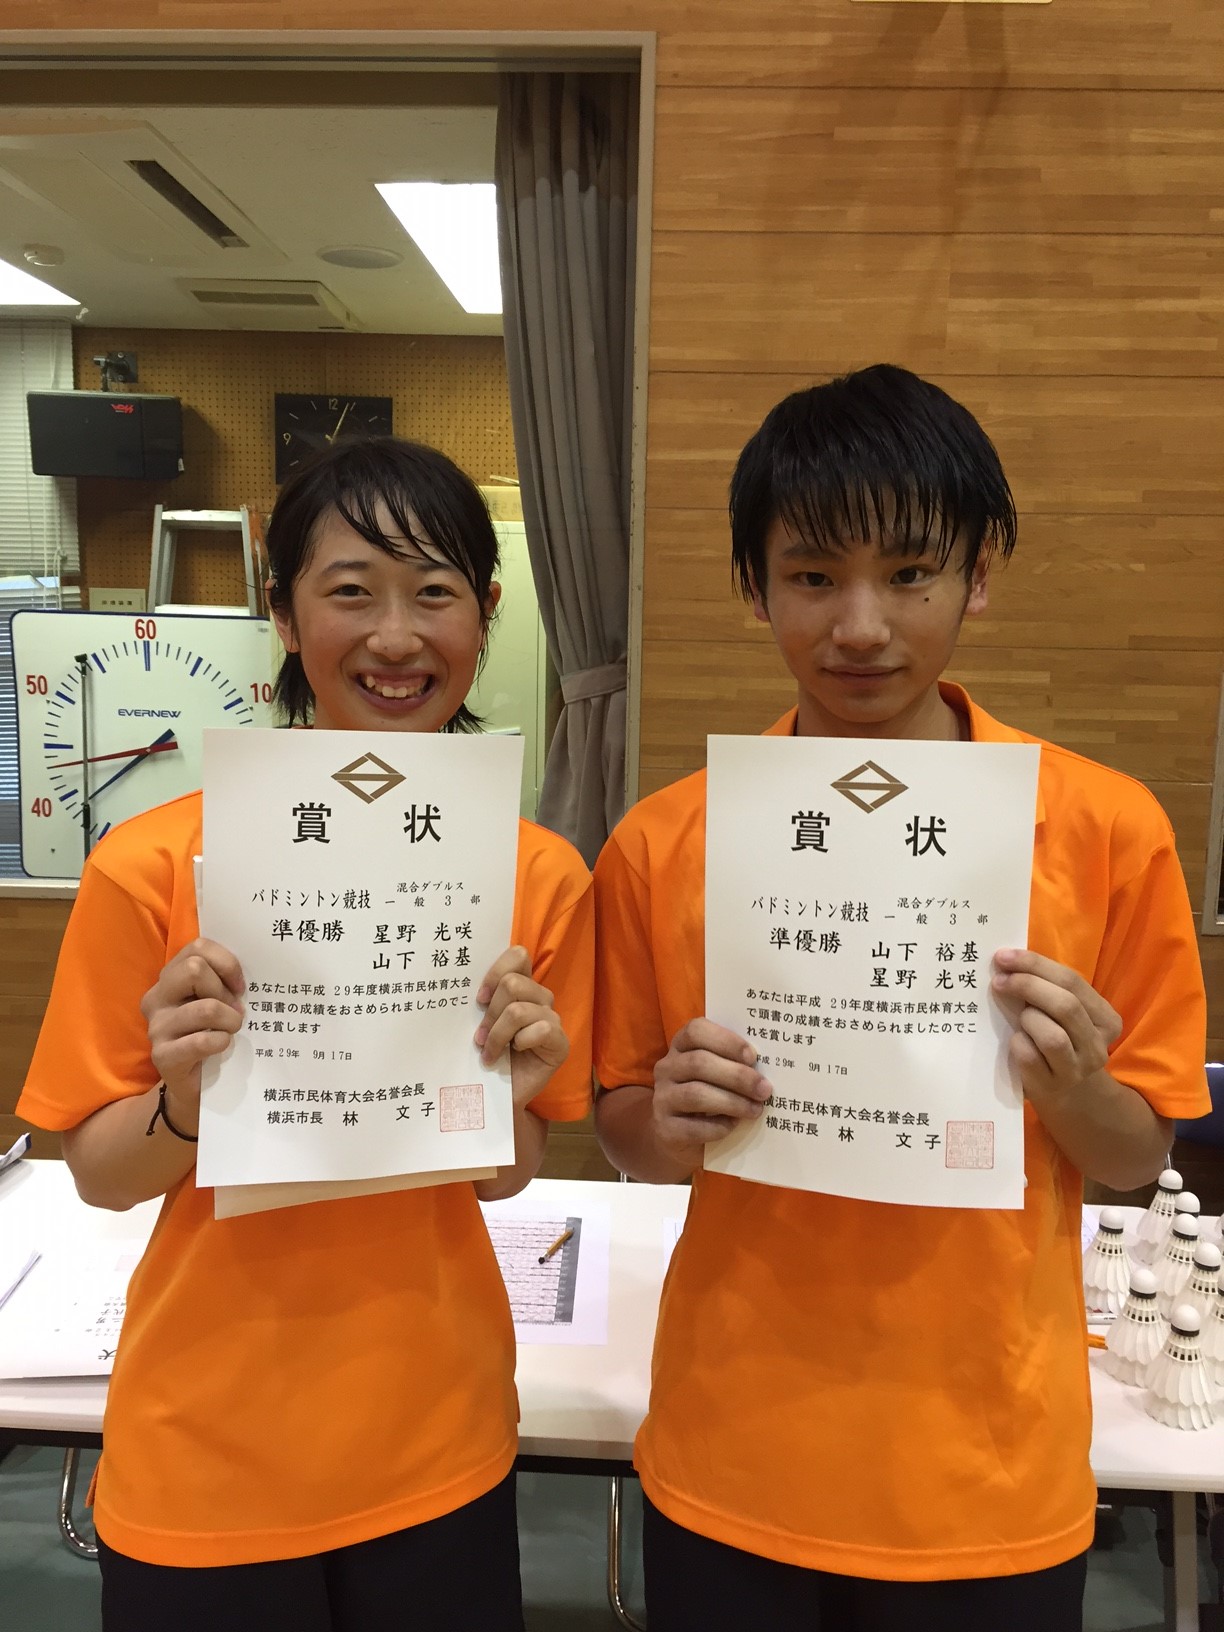 VOSS
12
9
60
50
10
40
EVERNEW
賞 状
バドミントン競技 混合ダブルス 一般3部
準優勝 星野 光咲
山下 裕基
あなたは平成 29年度横浜市民体育大会
で頭書の成績をおさめられましたのでこ
れを賞します
平成 29年 9月 17日
横浜市民体育大会名誉会長
横浜市長 林 文 子
賞 状
バドミントン競技 混合ダブルス 一般3部
準優勝 山下 裕基
星野 光咲
あなたは平成 29年度横浜市民体育大会
で頭書の成績をおさめられましたのでこ
れを賞します
平成 29年 9月 17日
横浜市民体育大会名誉会長
横浜市長 林 文 子